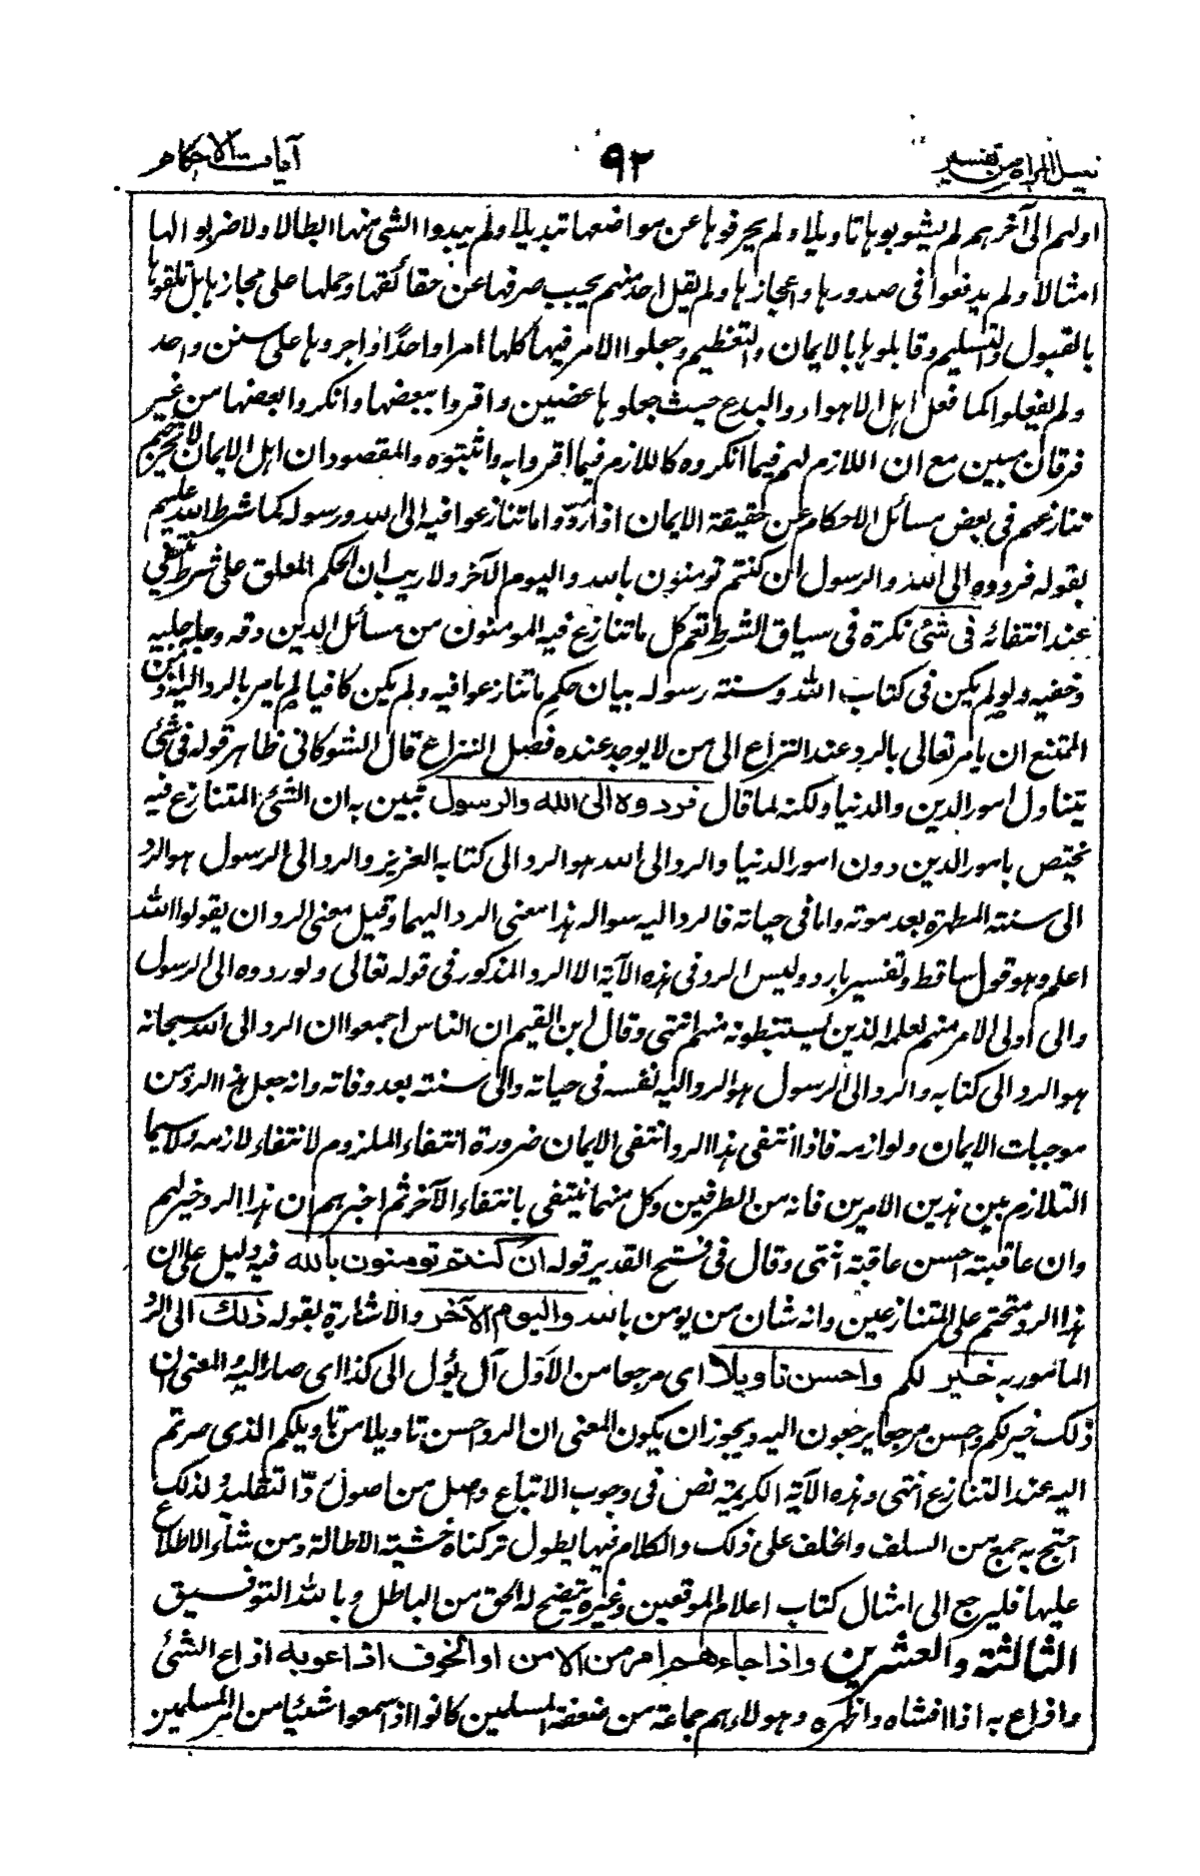 نيل المرام من تفسير
٩٢
آيات الاحكام
اولهم الى آخرهم لم يشوبوها تاويلا ولم يحرفوها عن مواضعها تبديلا ولم يبدوا الشئ منها ابطالا ولا ضربوا لها
امثالا ولم يدفعوا فى صدورها واعجازها ولم يقل احد منهم يجب صرفها عن حقائقها وحملها على مجازها بل تلقوها
بالقبول والتسليم وقابلوها بالايمان والتعظيم وجعلوا الامر فيها كلها امرا واحدًا واجروها على سنن واحد
ولم يفعلوا كما فعل اهل الاهواء والبدع حيث جعلوها عضين واقروا ببعضها وانكروا بعضها من غير
فرقان مبين مع ان اللازم لهم فيما انكروه كاللازم فيما اقروا به واثبتوه والمقصود ان اهل الايمان لا يخرجهم
تنازعهم فى بعض مسائل الاحكام عن حقيقة الايمان اذا ردّوا ما تنازعوا فيه الى الله ورسوله كما شرط الله عليهم
بقوله فردوه الى الله والرسول ان كنتم تومنون بالله واليوم الآخر ولا ريب ان الحكم المعلق على شرط ينتفى
عند انتفائه فى شئ نكرة فى سياق الشرط تعم كل ما تنازع فيه المومنون من مسائل الدين دقه وجله جليه
وخفيه ولو لم يكن فى كتاب الله وسنة رسوله بيان حكم ما تنازعوا فيه ولم يكن كافيا لم يامر بالرد اليه اذ من
الممتنع ان يامر تعالى بالرد عند النزاع الى من لا يوجد عنده فصل النزاع قال الشوكانى ظاهر قوله فى شئ
يتناول امور الدين والدنيا ولكنه لما قال فردوه الى الله والرسول تبين به ان الشئ المتنازع فيه
يختص بامور الدين دون امور الدنيا والرد الى الله هو الرد الى كتابه العزيز والرد الى الرسول هو الرد
الى سنته المطهرة بعد موته واما فى حياته فالرد اليه سواله هذا معنى الرد اليهما وقيل معنى الرد ان يقولوا الله
اعلم وهو قول ساقط وتفسير بارد وليس الرد فى هذه الآية الا الرد المذكور فى قوله تعالى ولو ردوه الى الرسول
والى اولى الامر منهم لعلمه الذين يستنبطونه منهم انتهى وقال ابن القيم ان الناس اجمعوا ان الرد الى الله سبحانه
هو الرد الى كتابه والرد الى الرسول هو الرد اليه نفسه فى حياته والى سنته بعد وفاته وانه جعل هذا الرد من
موجبات الايمان ولوازمه فاذا انتفى هذا الرد انتفى الايمان ضرورة انتفاء الملزوم لانتفاء لازمه ولا سيما
التلازم بين هذين الامرين فانه من الطرفين وكل منهما ينتفى بانتفاء الآخر ثم اخبرهم ان هذا الرد خير لهم
وان عاقبته احسن عاقبة انتهى وقال فى فتح القدير قوله ان كنتم تومنون بالله فيه دليل على ان
هذا الرد متحتم على المتنازعين وانه شان من يومن بالله واليوم الآخر والاشارة بقوله ذلك الى الرد
المامور به خير لكم واحسن تاويلا اى مرجعا من الاَوْل آل يؤل الى كذا اى صار اليه والمعنى ان
ذلك خير لكم واحسن مرجعا يرجعون اليه ويجوز ان يكون المعنى ان الرد احسن تاويلا من تاويلكم الذى صرتم
اليه عند التنازع انتهى وهذه الآية الكريمة نص فى وجوب الاتباع واصل من اصول ردّ التقليد لذلك
احتج به جمع من السلف والخلف على ذلك والكلام فيها يطول تركناه خشية الاطالة ومن شاء الاطلاع
عليها فليرجع الى امثال كتاب اعلام الموقعين وغيره يتضح له الحق من الباطل وبالله التوفيق
الثالثة والعشرين واذا جاءهم امر من الامن او الخوف اذاعوا به اذاع الشئ
واذاع به اذا افشاه واظهره وهولاء هم جماعة من ضعفة المسلمين كانوا اذا سمعوا شيئا من امر المسلمين